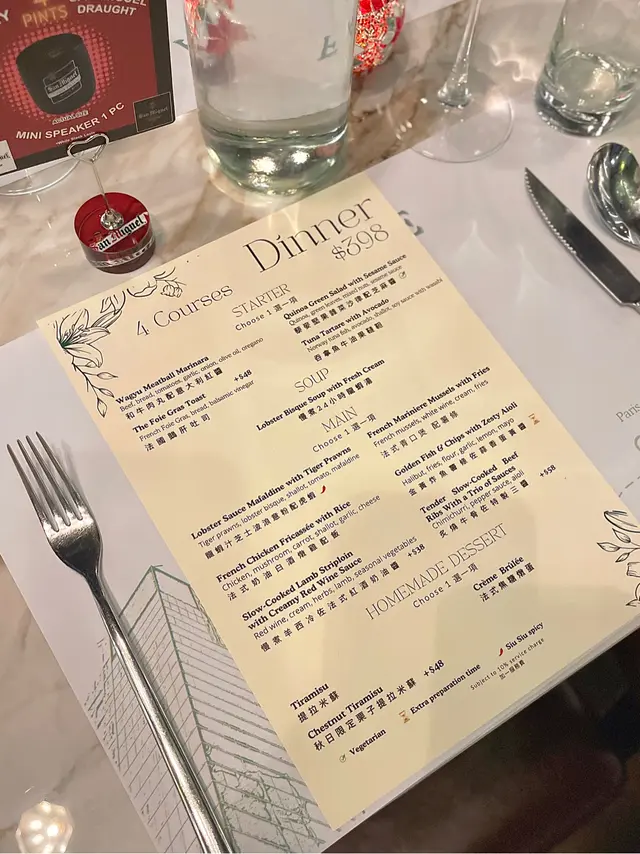 PINTS
DRAUGHT
San Miguel
MINI SPEAKER 1 PC
San Miguel
San Miguel
Dinner
$398
4 Courses
STARTER
Choose 1 選一項
Wagyu Meatball Marinara
Beef, bread, tomatoes, garlic, onion, olive oil, oregano
和牛肉丸配意大利紅醬
The Foie Gras Toast +$48
French Foie Gras, bread, balsamic vinegar
法國鵝肝吐司
Quinoa Green Salad with Sesame Sauce
Quinoa, green leaves, mixed nuts, sesame sauce
藜麥堅果綠菜沙律配芝麻醬
Tuna Tartare with Avocado
Norway tuna fish, avocado, shallot, soy sauce with wasabi
吞拿魚牛油果韃靼
SOUP
Lobster Bisque Soup with Fresh Cream
慢煮24小時龍蝦湯
MAIN
Choose 1 選一項
Lobster Sauce Mafaldine with Tiger Prawns
Tiger prawns, lobster bisque, shallot, tomato, mafaldine
龍蝦汁芝士波浪意粉配虎蝦
French Chicken Fricassée with Rice
Chicken, mushroom, carrot, shallot, garlic, cheese
法式奶油白酒燉雞配飯
Slow-Cooked Lamb Striploin
with Creamy Red Wine Sauce +$38
Red wine, cream, herbs, lamb, seasonal vegetables
慢煮羊西冷佐法式紅酒奶油醬
French Mariniere Mussels with Fries
French mussels, white wine, cream, fries
法式青口煲 配薯條
Golden Fish & Chips with Zesty Aioli
Halibut, fries, flour, garlic, lemon, mayo
金黃炸魚薯條佐蒜香蛋黃醬
Tender Slow-Cooked Beef
Ribs With a Trio of Sauces +$58
Chimichurri, pepper sauce, aioli
炙燒牛肋佐特製三醬
HOMEMADE DESSERT
Choose 1 選一項
Tiramisu
提拉米蘇
Chestnut Tiramisu +$48
秋日限定栗子提拉米蘇
Crème Brûlée
法式焦糖燉蛋
Vegetarian
Extra preparation time
Siu Siu spicy
Subject to 10% service charge
加一服務費
Paris